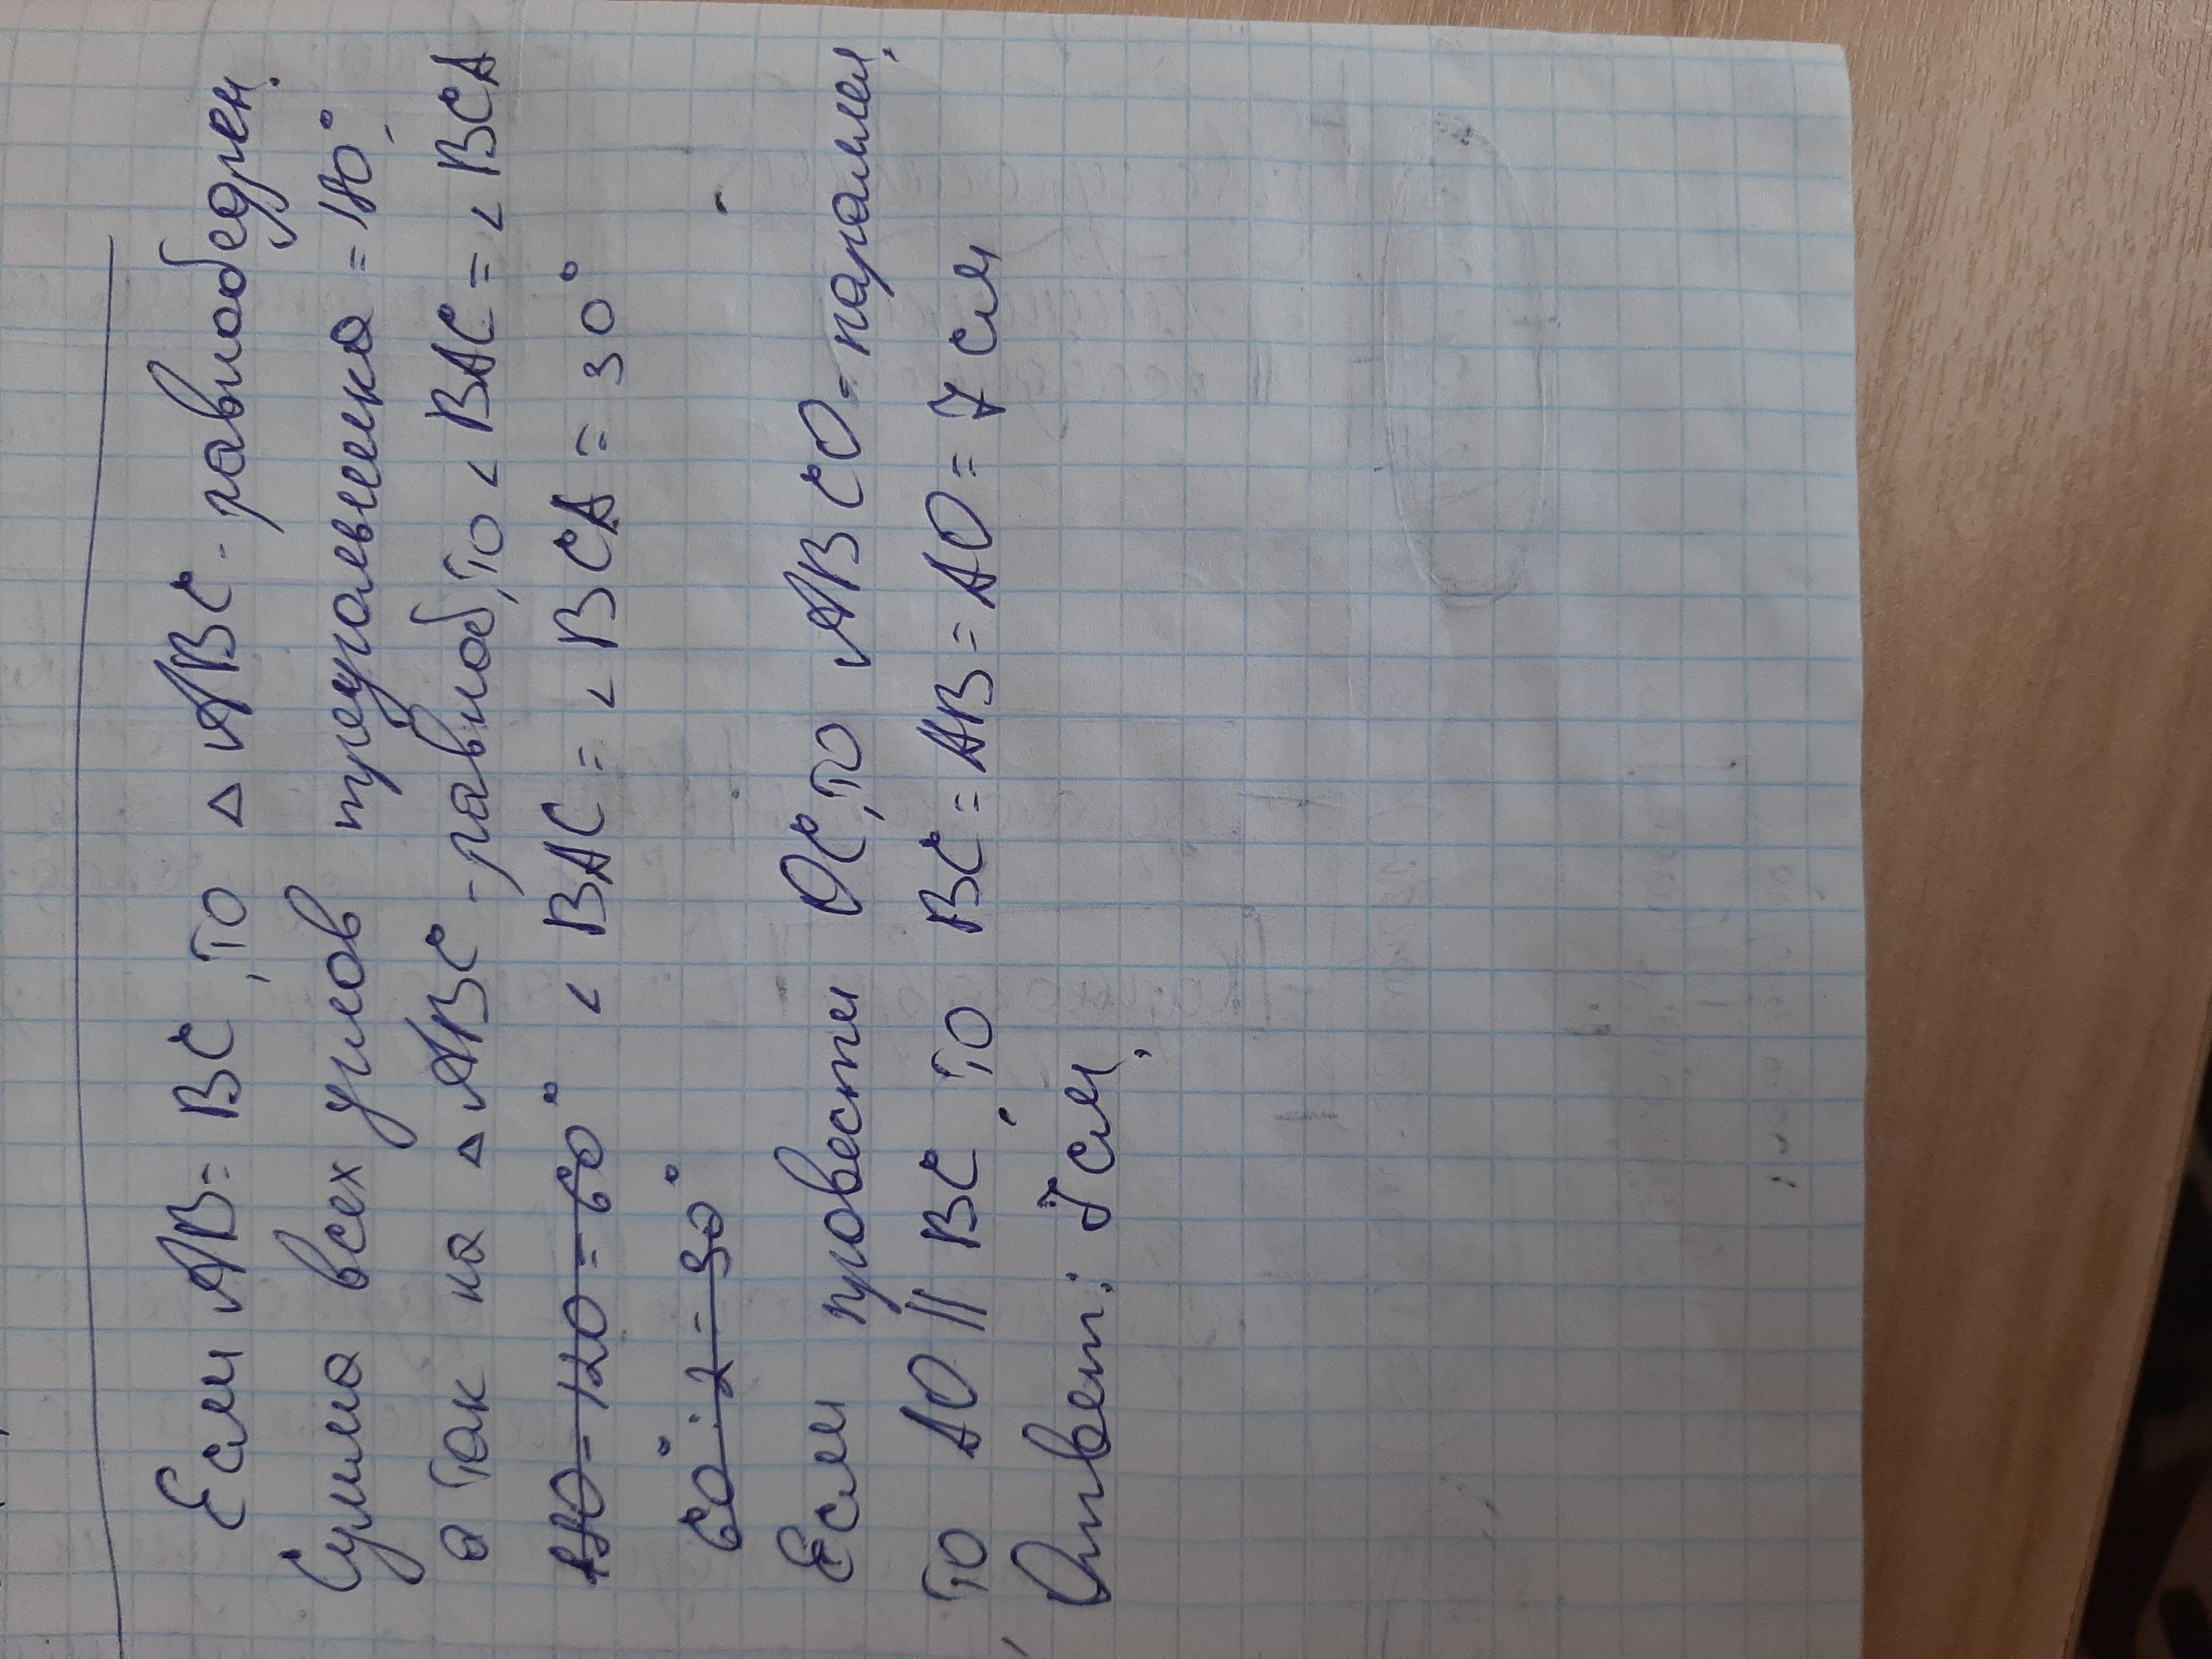 Если AB = BC, то △ ABC - равнобедрен.
Сумма всех углов треугольника = 180°,
а так как △ ABC - равноб, то < BAC = < BCA
180 - 120 = 60° < BAC = < BCA = 30°
60° : 2 = 30°
Если провести OC, то ABCO - паралмел,
то AO || BC, то BC = AB = AO = 7 см
Ответ: 7 см,